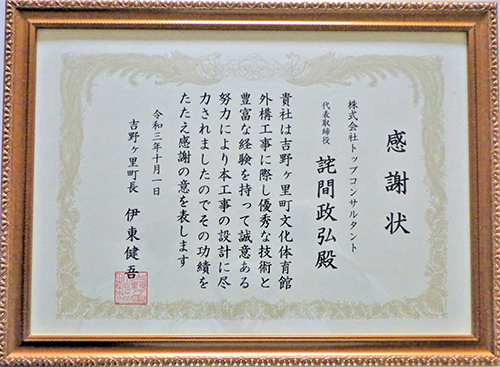 感謝状
株式会社トップコンサルタント
代表取締役
詫間政弘殿
貴社は吉野ヶ里町文化体育館
外構工事に際し優秀な技術と
豊富な経験を持って誠意ある
努力により本工事の設計に尽
力されましたのでその功績を
たたえ感謝の意を表します
令和三年十月一日
吉野ヶ里町長 伊東健吾